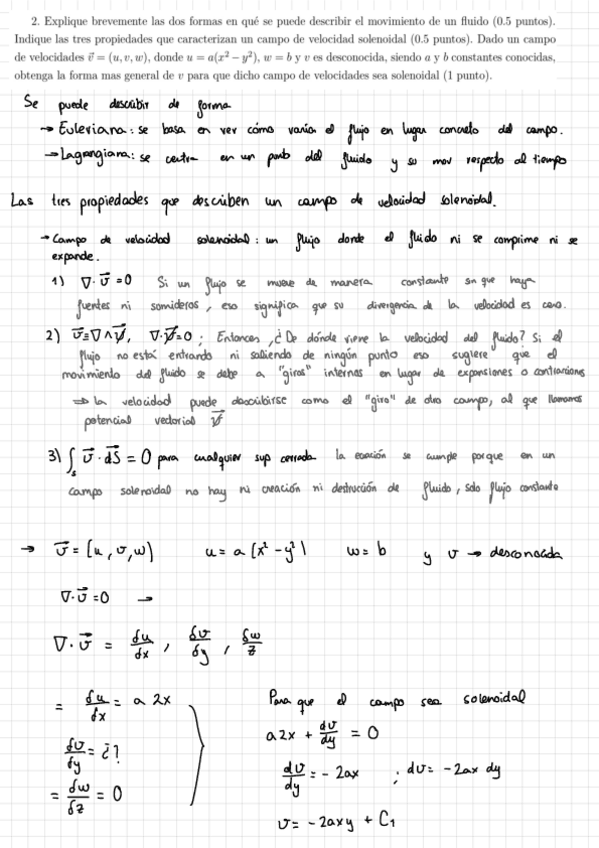 2. Explique brevemente las dos formas en qué se puede describir el movimiento de un fluido (0.5 puntos).
Indique las tres propiedades que caracterizan un campo de velocidad solenoidal (0.5 puntos). Dado un campo
de velocidades v⃗ = (u, v, w), donde u = a(x² − y²), w = b y v es desconocida, siendo a y b constantes conocidas,
obtenga la forma mas general de v para que dicho campo de velocidades sea solenoidal (1 punto).
Se puede describir de forma
→ Euleriana: se basa en ver cómo varía el flujo en lugar concreto del campo.
→ Lagrangiana: se centra en un punto del fluido y su mov respecto al tiempo
Las tres propiedades que describen un campo de velocidad solenoidal.
→ Campo de velocidad solenoidal: un flujo donde el fluido ni se comprime ni se
expande.
1) ∇·v⃗ = 0 Si un flujo se mueve de manera constante sin que haya
fuentes ni sumideros, eso significa que su divergencia de la velocidad es cero.
2) v⃗ = ∇∧ψ⃗, ∇·ψ⃗=0; Entonces, ¿De dónde viene la velocidad del fluido? Si el
flujo no está entrando ni saliendo de ningún punto eso sugiere que el
movimiento del fluido se debe a "giros" internos en lugar de expansiones o contracciones
⇒ la velocidad puede describirse como el "giro" de otro campo, al que llamamos
potencial vectorial ψ⃗
3) ∫ₛ v⃗·dS⃗ = 0 para cualquier sup cerrada la ecación se cumple porque en un
campo solenoidal no hay ni creación ni destrucción de fluido, solo flujo constante
→ v⃗ = (u, v, w) u = a (x² − y²) w = b y v → desconocida
∇·v⃗ = 0 →
∇·v⃗ = δu/δx , δv/δy , δw/z
= δu/δx = a 2x
δv/δy = ¿?
= δw/δz = 0
Para que el campo sea solenoidal
a2x + dv/dy = 0
dv/dy = − 2ax ; dv = −2ax dy
v = − 2axy + C₁